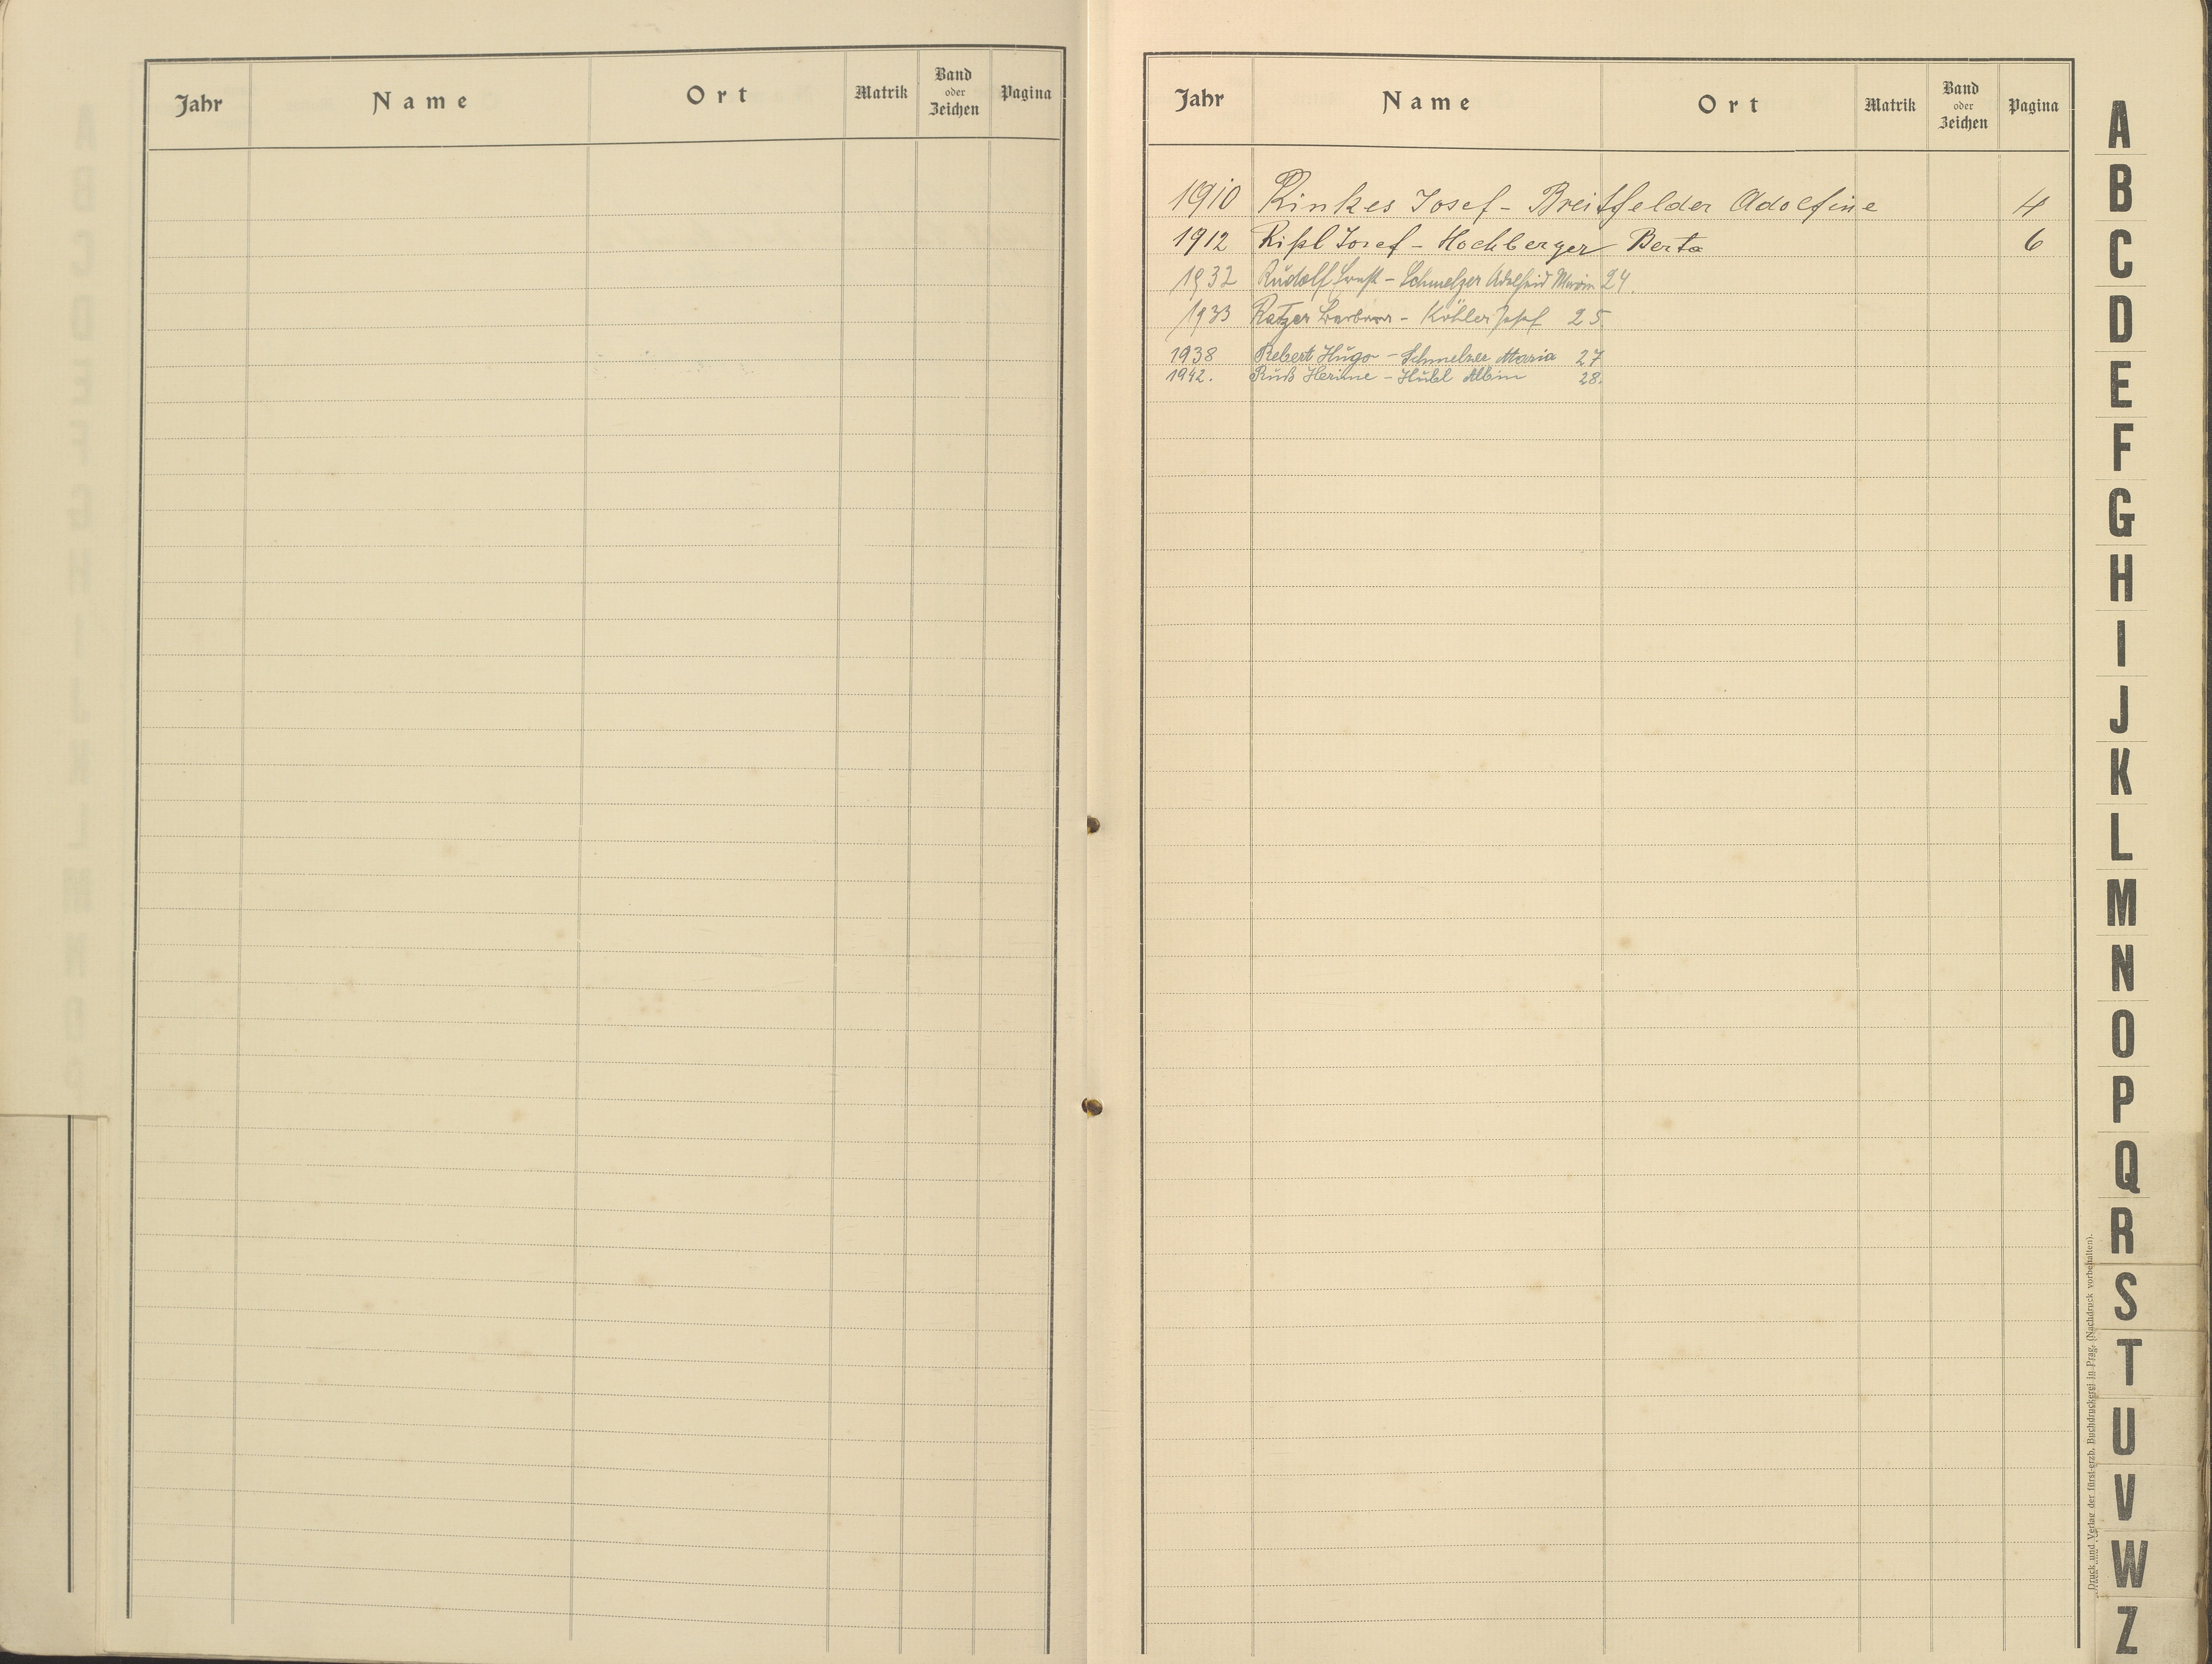 Jahr Name Ort Matrik Band oder Zeichen Pagina
Jahr Name Ort Matrik Band oder Zeichen Pagina
1910 Rinkes Josef - Breitfelder Adolfine 4
1912 Rißl Josef - Hochberger Berta 6
1932 Rudolf Ernst - Schmelzer Adelheid Maria 24.
1933 Ratzer Barbara - Köhler Josef 25.
1938 Rebert Hugo - Schmelzer Maria 27
1942. Ruß - Hübl Albin 28.
A
B
C
D
E
F
G
H
I
J
K
L
M
N
O
P
Q
R
S
T
U
V
W
Z
Druck und Verlag der fürst-erzb. Buchdruckerei in Prag. (Nachdruck vorbehalten).